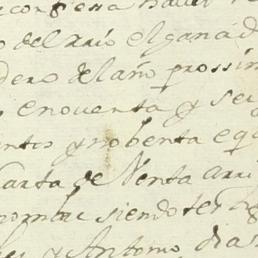 confiesa haver
del rrio el ganad
dero del año prossim
enouenta y sei
entos y nobenta e
Carta de Venta
nombre siendo tes
y Antonio dias